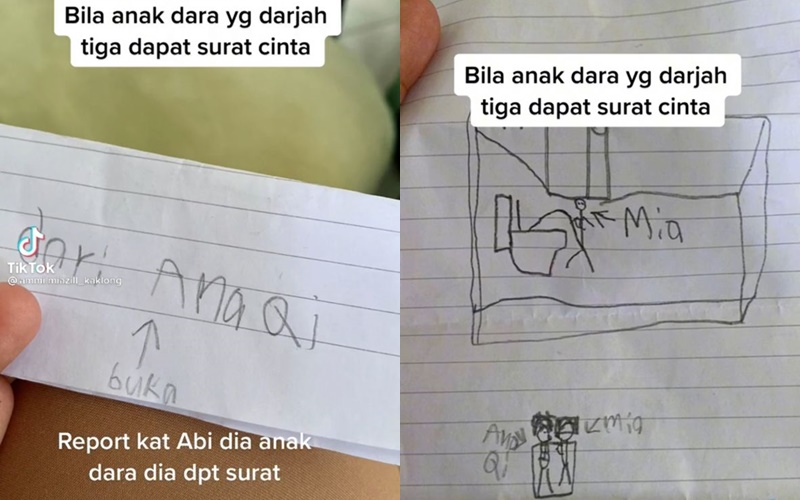 Bila anak dara yg darjah
tiga dapat surat cinta
dari AnaQi
TikTok
@ammiemiazill_kaklong
buka
Report kat Abi dia anak
dara dia dpt surat
Bila anak dara yg darjah
tiga dapat surat cinta
Mia
Ana
Qi
Mia